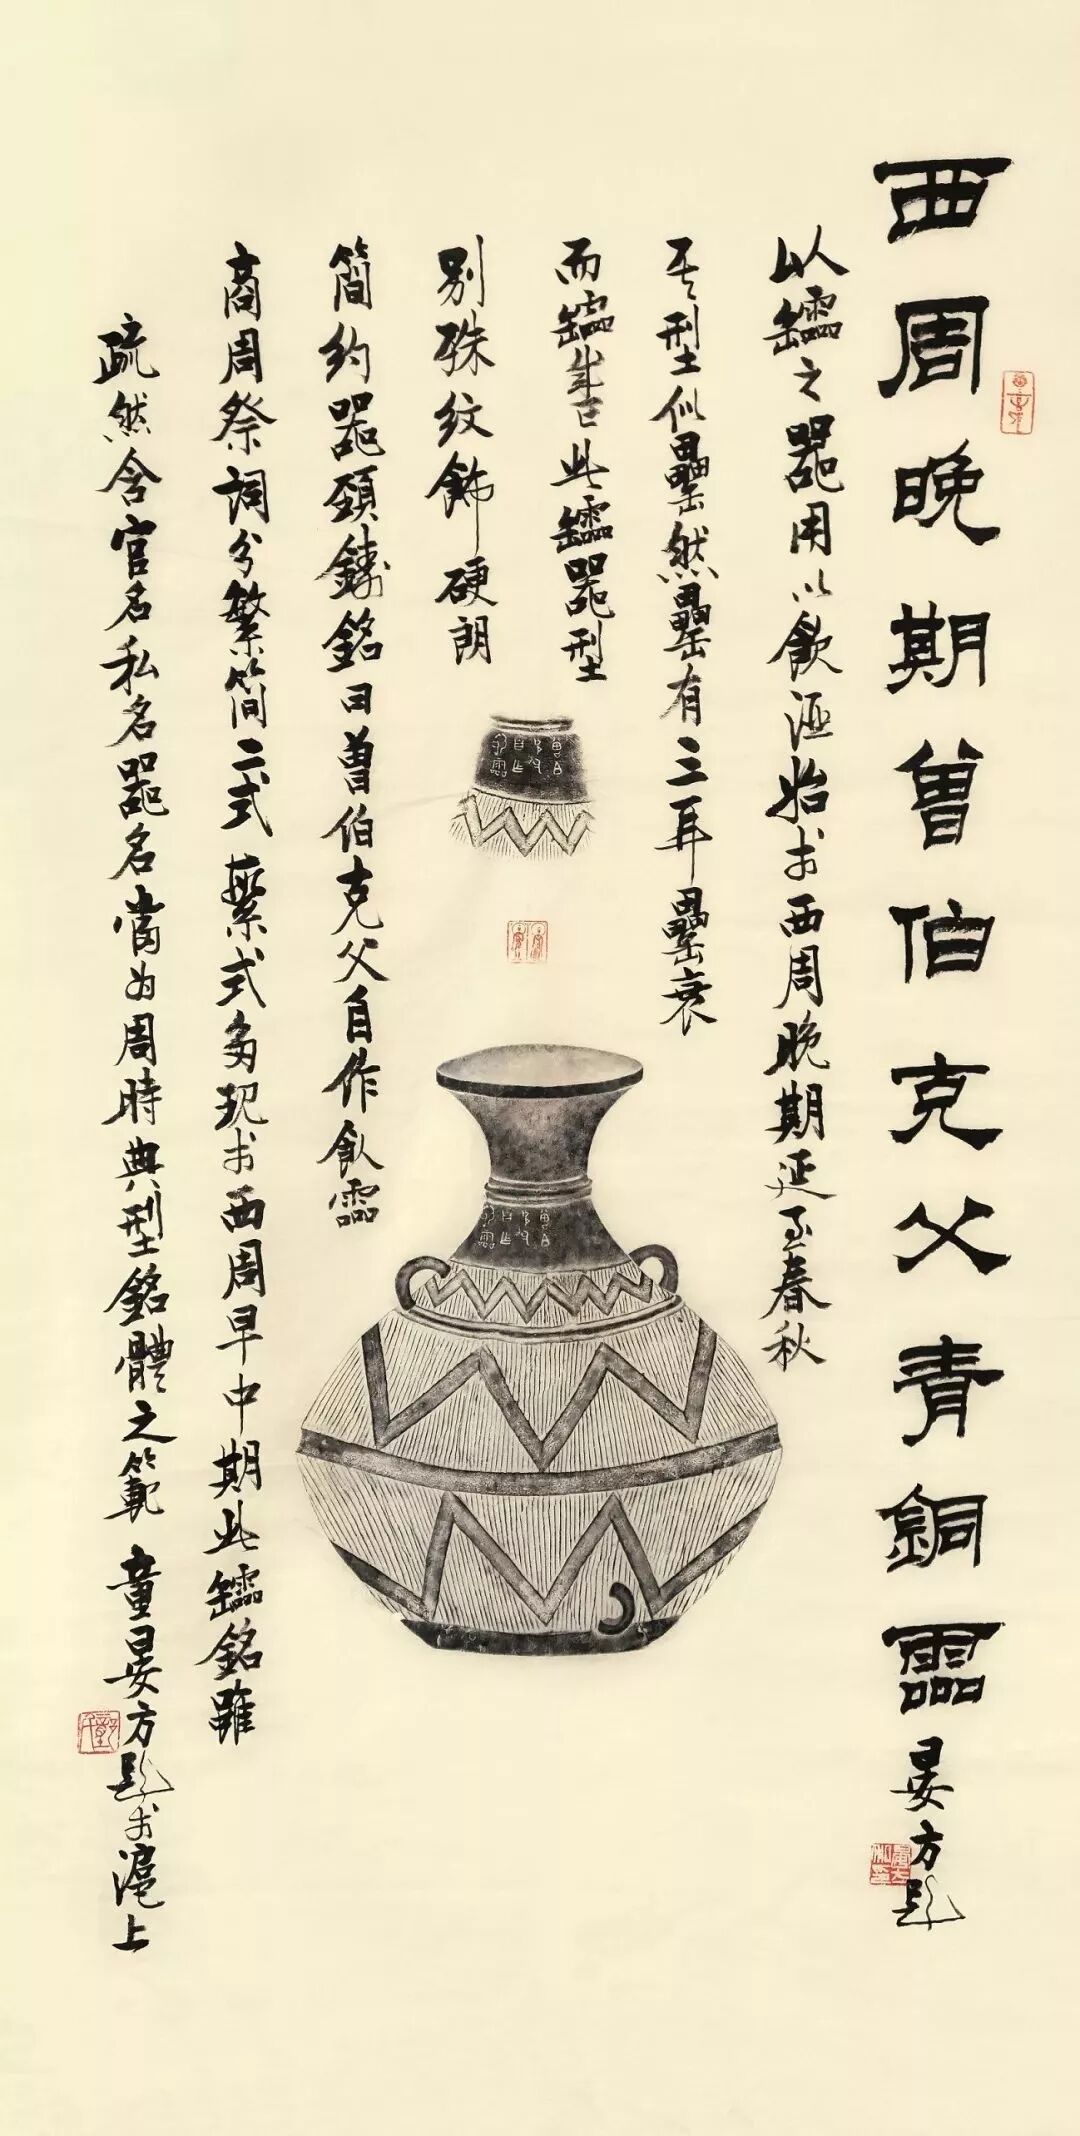 西周晚期曾伯克父青銅霝
晏方題
以鑐之器用以飲酒始於西周晚期延至春秋
其型似罍然罍有三耳罍衰
而鑐生焉此鑐器型
別殊紋飾硬朗
簡約器頸鑄銘曰曾伯克父自作飲霝
商周祭詞分繁簡二式繁式多現於西周早中期此鑐銘雖
疏然含官名私名器名當為周時典型銘體之範 童晏方題於滬上